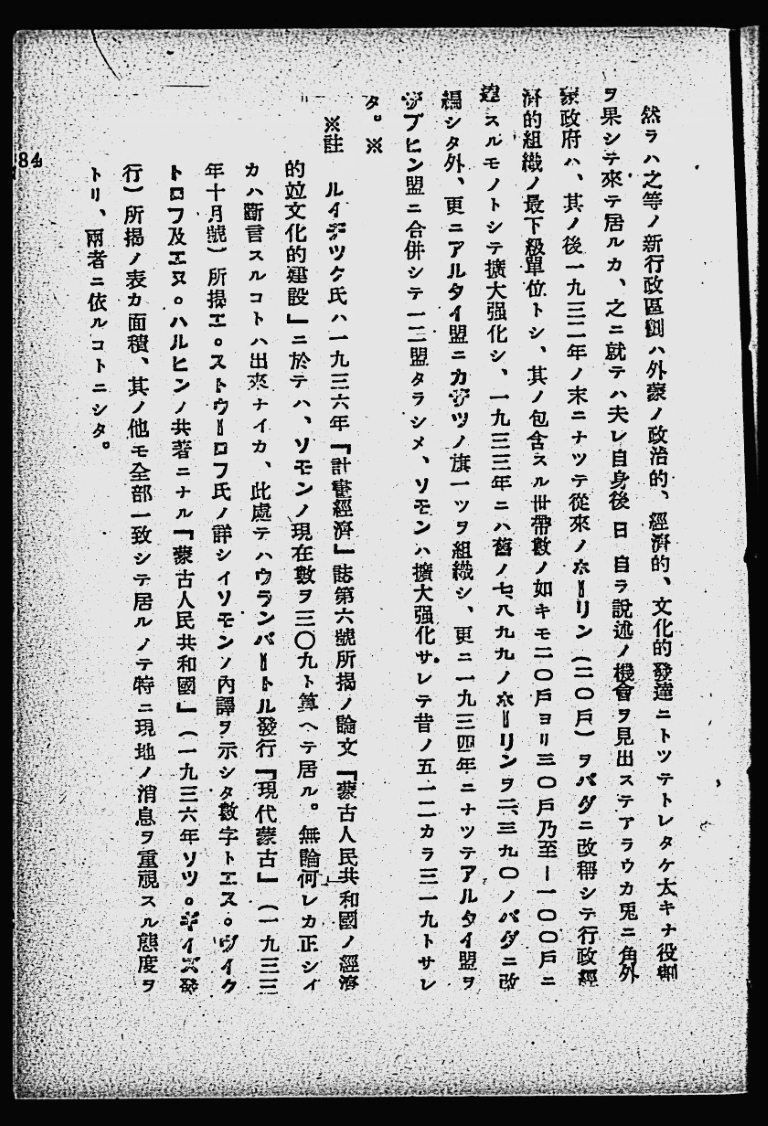 然ラハ之等ノ新行政區劃ハ外蒙ノ政治的、經濟的、文化的發達ニトツテトレタケ太キナ役割
ヲ果シテ來テ居ルカ、之ニ就テハ夫レ自身後日自ラ說述ノ機會ヲ見出ステアラウカ兎ニ角外
蒙政府ハ、其ノ後一九三二年ノ末ニナツテ從來ノホーリン(二〇戶)ヲバグニ改稱シテ行政經
濟的組織ノ最下級單位トシ、其ノ包含スル世帶數ノ如キモ二〇戶ヨリ三〇戶乃至一一〇〇戶ニ
達スルモノトシテ擴大强化シ、一九三三年ニハ舊ノ七八九九ノホーリンヲ二、三九〇ノバグニ改
編シタ外、更ニアルタイ盟ニカザツノ旗一ツヲ組織シ、更ニ一九三四年ニナツテアルタイ盟ヲ
ヂブヒン盟ニ合併シテ一二盟タラシメ、ソモンハ擴大强化サレテ昔ノ五一二カラ三一九トサレ
タ。※
※註 ルイヂツク氏ハ一九三六年『計畫經濟』誌第六號所揭ノ論文『蒙古人民共和國ノ經濟
的竝文化的建設』ニ於テハ、ソモンノ現在數ヲ三〇九ト算ヘテ居ル。無論何レカ正シイ
カハ斷言スルコトハ出來ナイカ、此處テハウランバートル發行『現代蒙古』(一九三三
年十月號)所揭エ。ストウーロフ氏ノ詳シイソモンノ內譯ヲ示シタ數字トエス。ヴイク
トロフ及エヌ。ハルヒンノ共著ニナル『蒙古人民共和國』(一九三六年ソツ。ギイズ發
行)所揭ノ表カ面積、其ノ他モ全部一致シテ居ルノテ特ニ現地ノ消息ヲ重視スル態度ヲ
トリ、兩者ニ依ルコトニシタ。
84